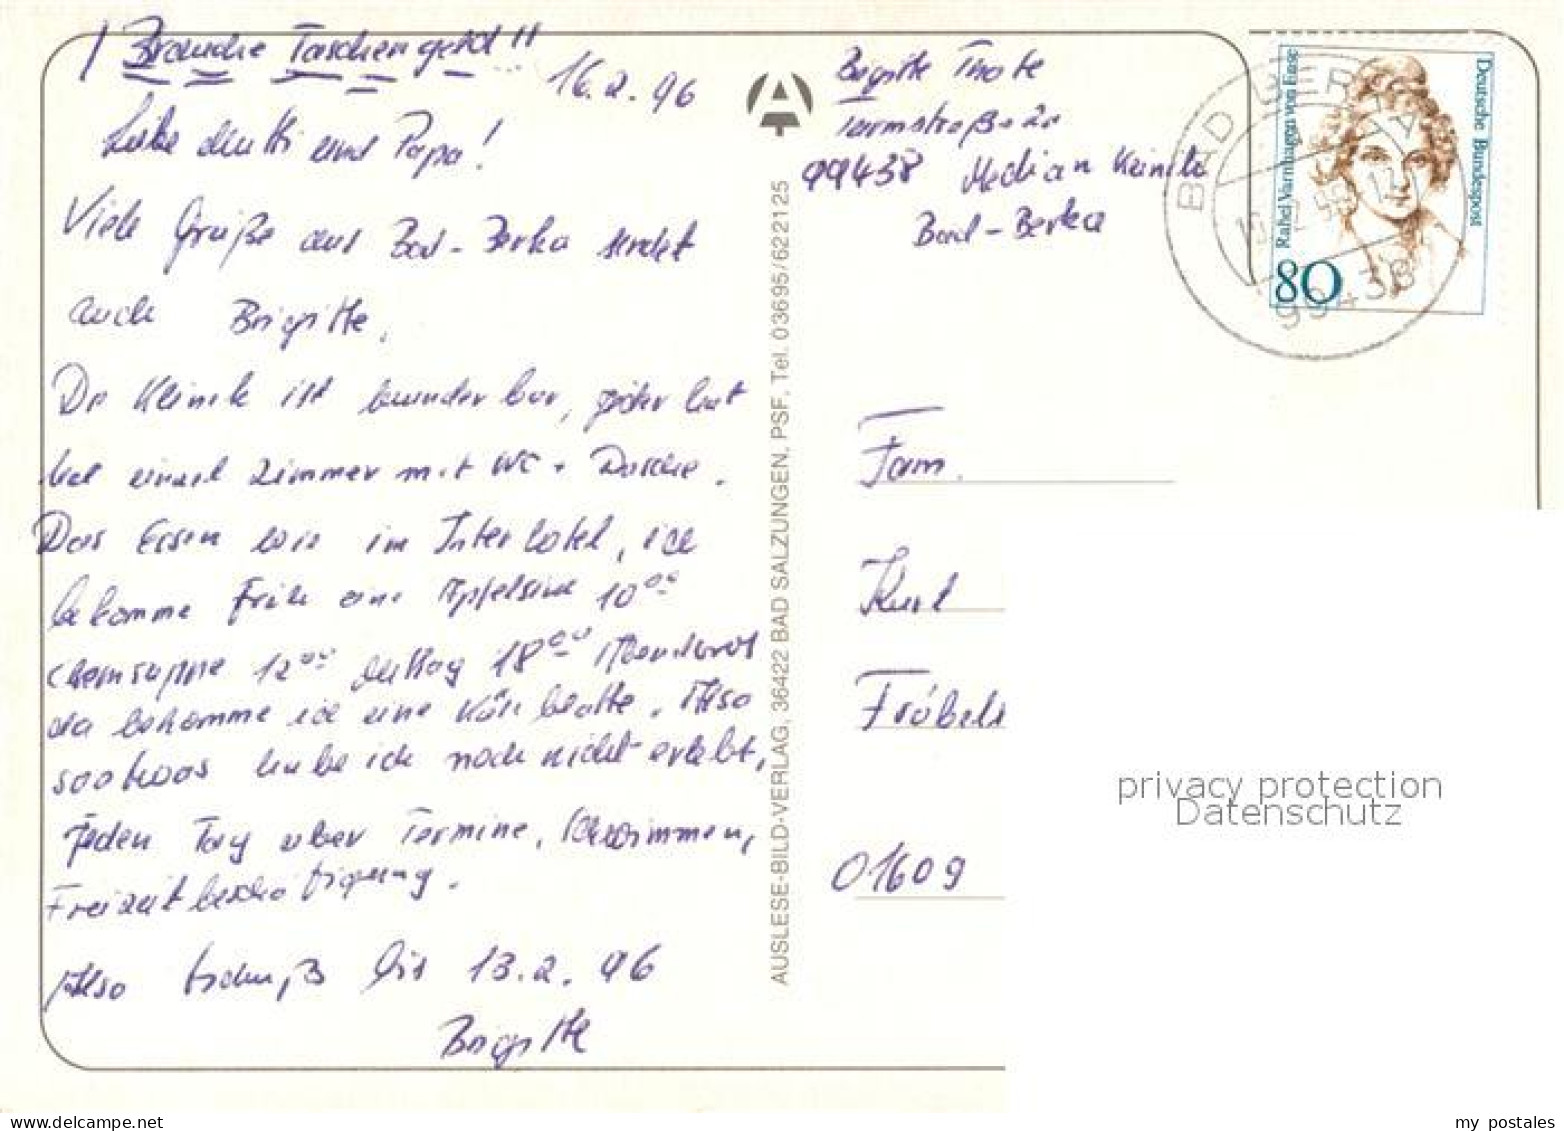 ! Brauche Taschengeld!!
16.2.96
Liebe Mutti und Papa!
Viele Grüße aus Bad-Berka sendet
euch Brigitte.
Die Klinik ist wunderbar, jeder hat
hat einzel Zimmer mit WC + Dusche.
Das Essen wie im Interhotel, ich
bekomme Früh eine Apfelsine 10⁰⁰
12⁰⁰ Mittag 18⁰⁰ Abendbrot
da bekomme ich eine Käseplatte. Also
habe ich noch nicht erlebt,
Jeden Tag über Termine, Schwimmen,
Freizeitbeschäftigung.
Also tschüß bis 13.2.96
Brigitte
AUSLESE-BILD-VERLAG, 36422 BAD SALZUNGEN, PSF, Tel. 03695/622125
Brigitte
99438 Median Keinik
Bad-Berka
BAD BERKA
99438
Rahel Varnhagen von Ense
Deutsche Bundespost
80
Fam.
Kurt
Fröbels
01609
privacy protection
Datenschutz
www.delcampe.net
my_postales